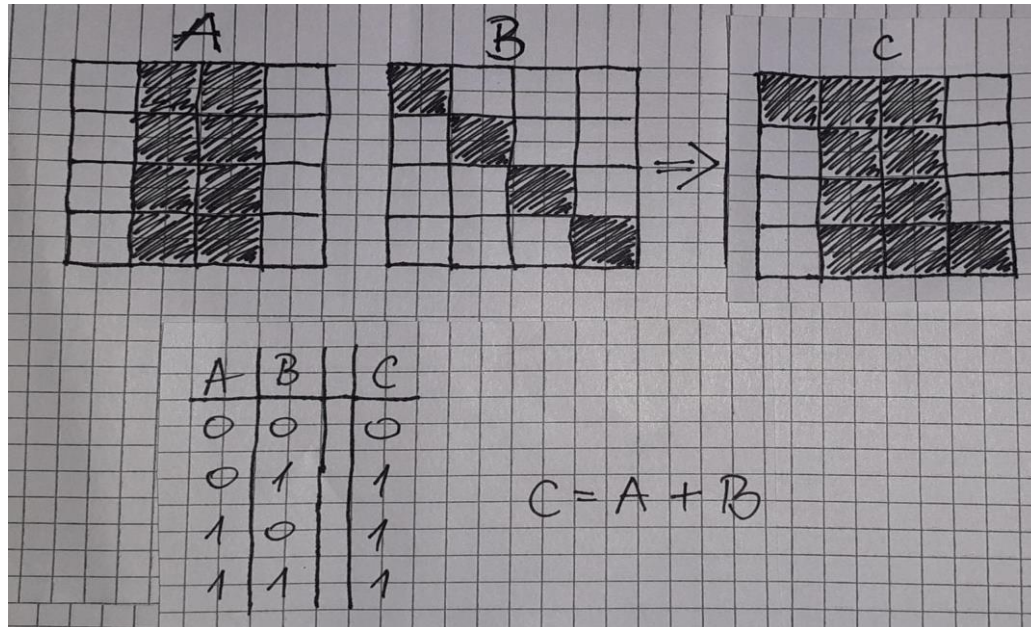 A B C
A B C
0 0 0
0 1 1
1 0 1
1 1 1
C = A + B